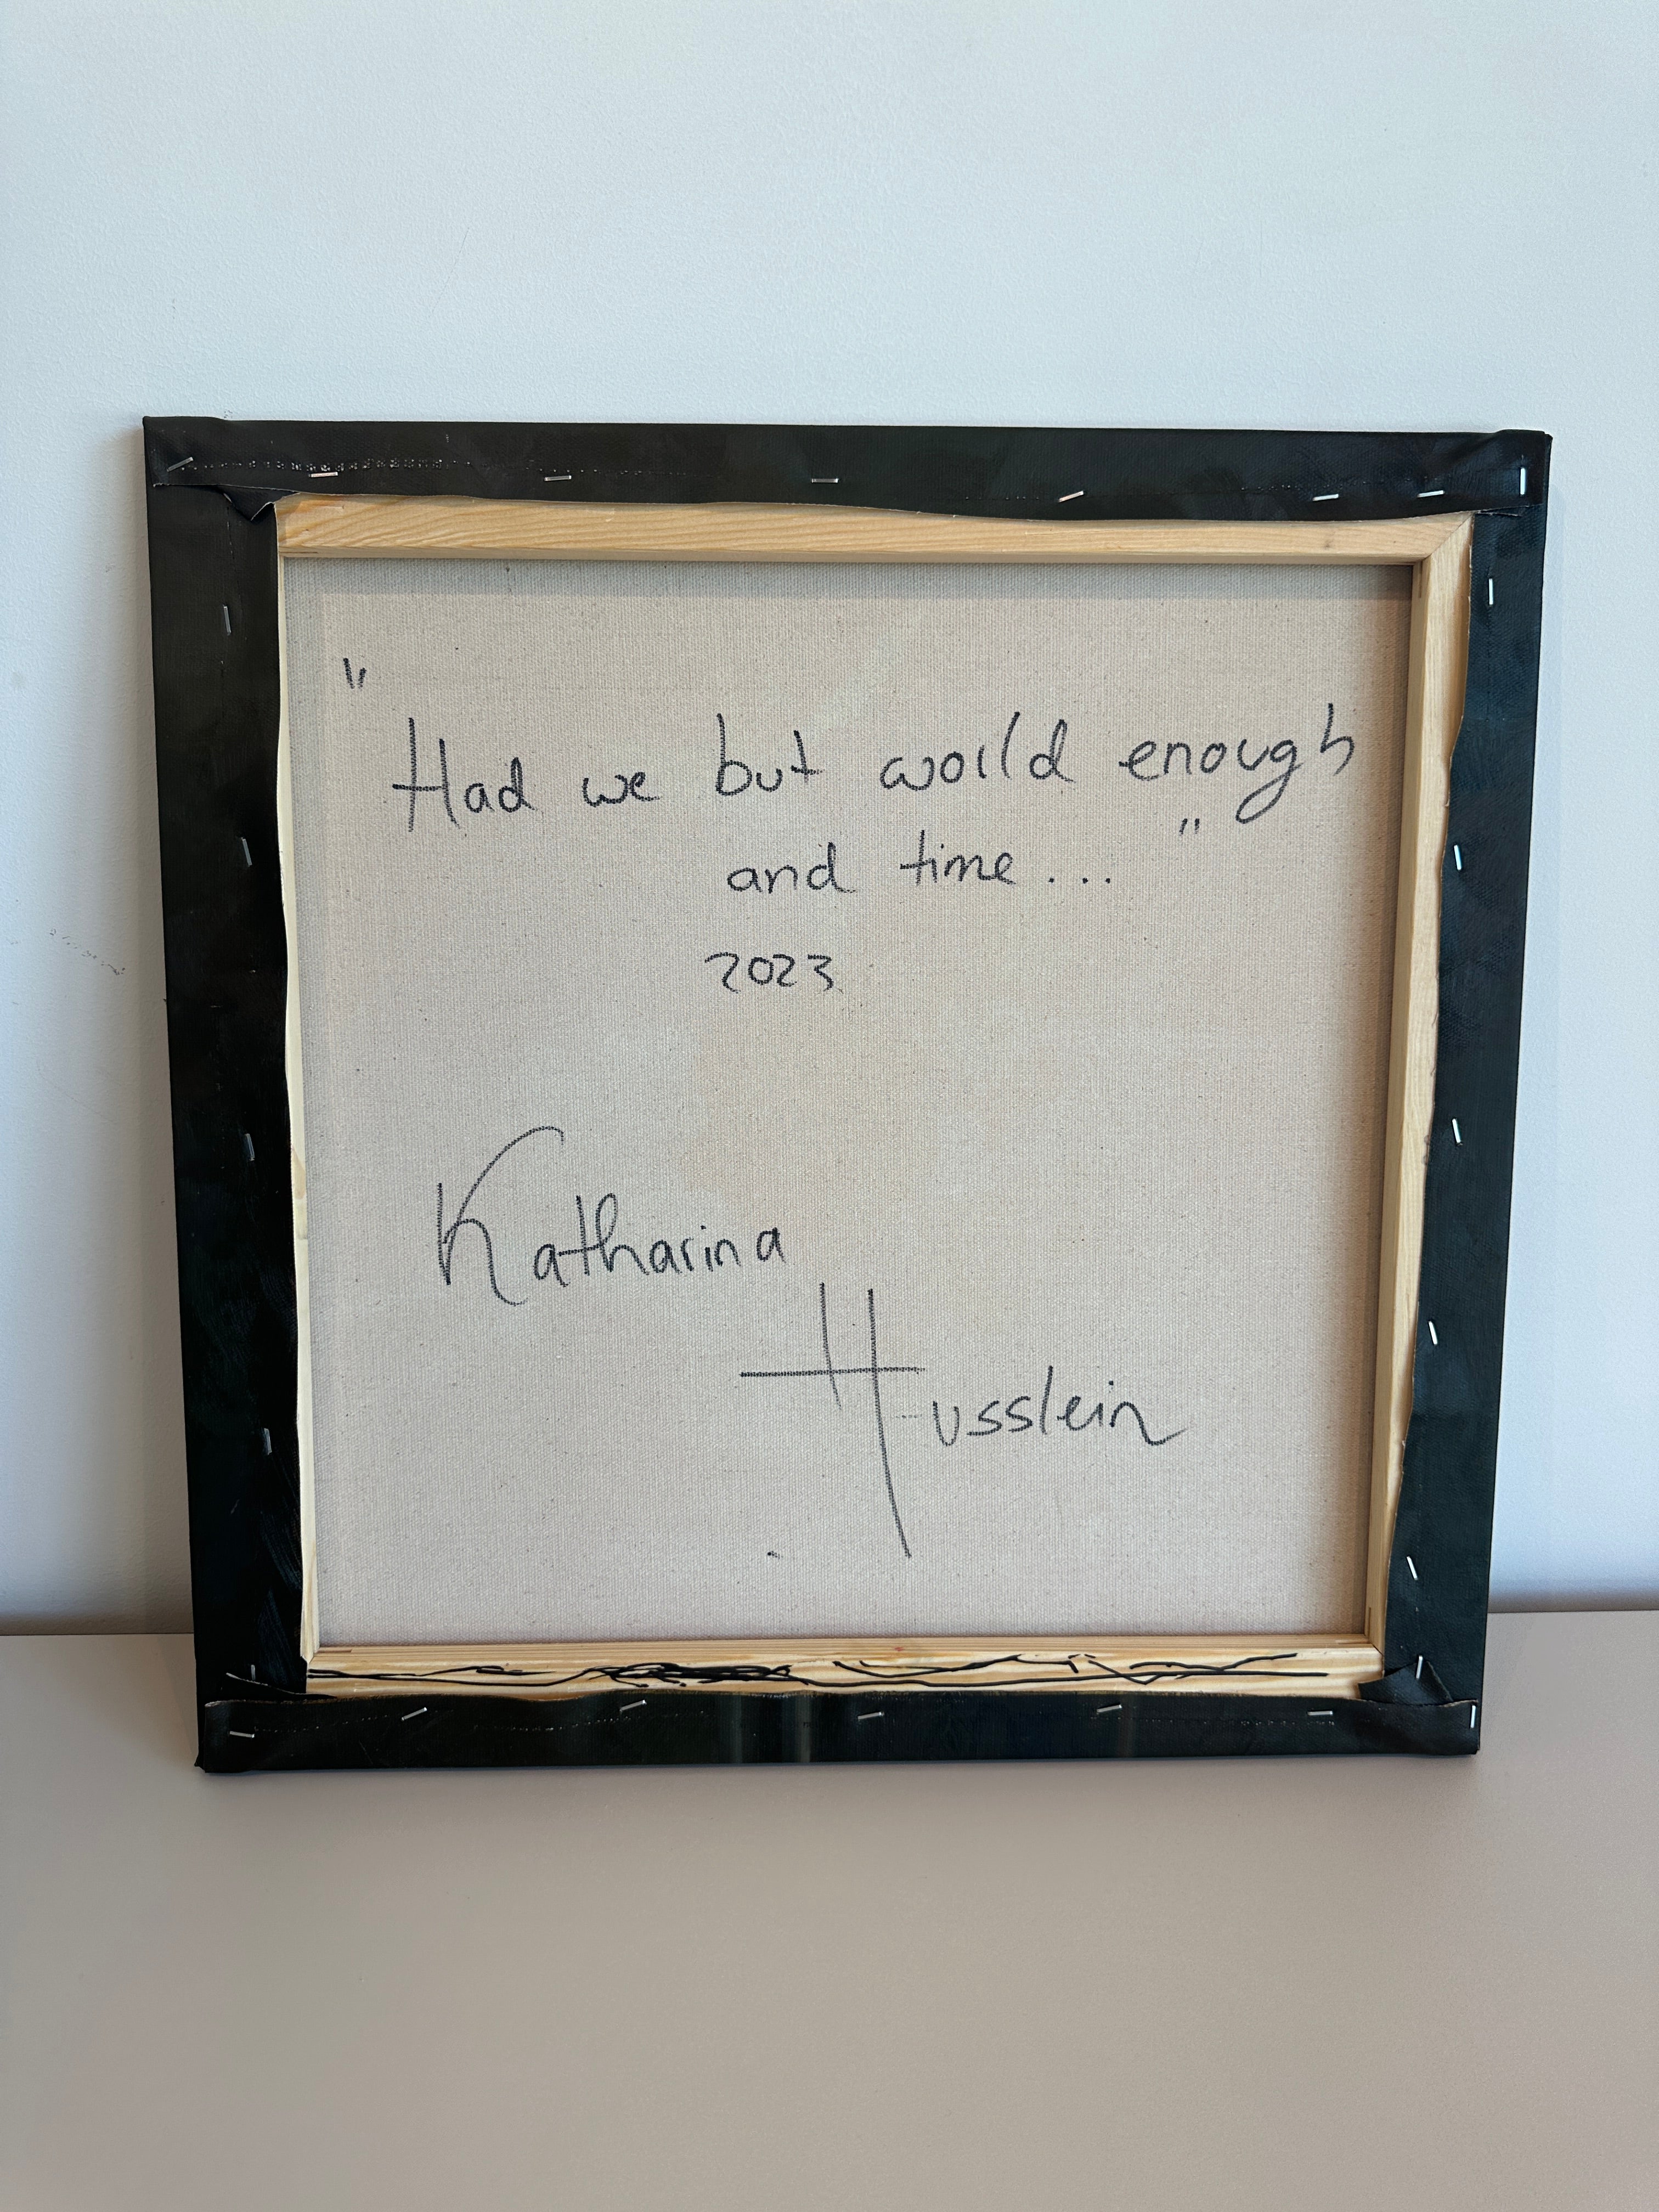 "Had we but world enough
and time..."
2023
Katharina
Husslein